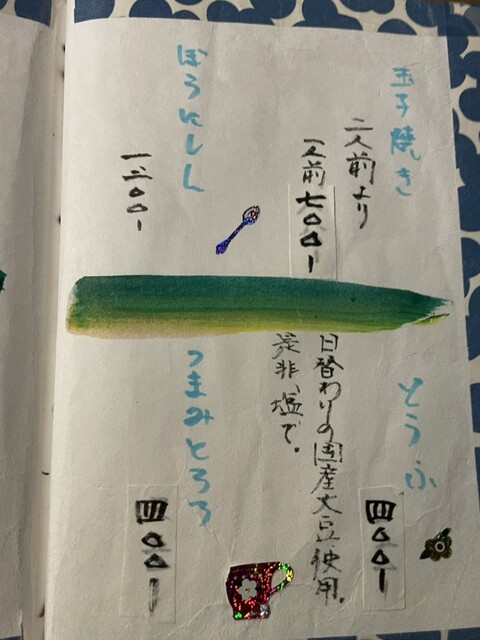 玉子焼き
二人前より
一人前 七〇〇ー
ぼうにしん
一三〇〇ー
とうふ
四〇〇ー
日替わりの国産大豆使用。
是非、塩で。
つまみとろろ
四〇〇ー